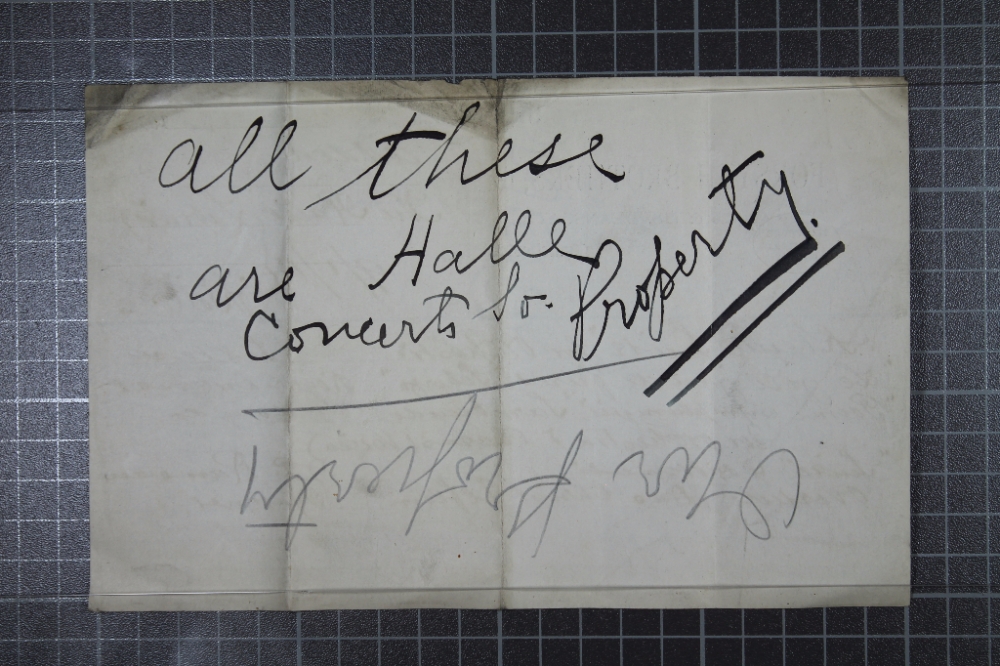 all these
are Halle
Concerts So. Property.
Our Property